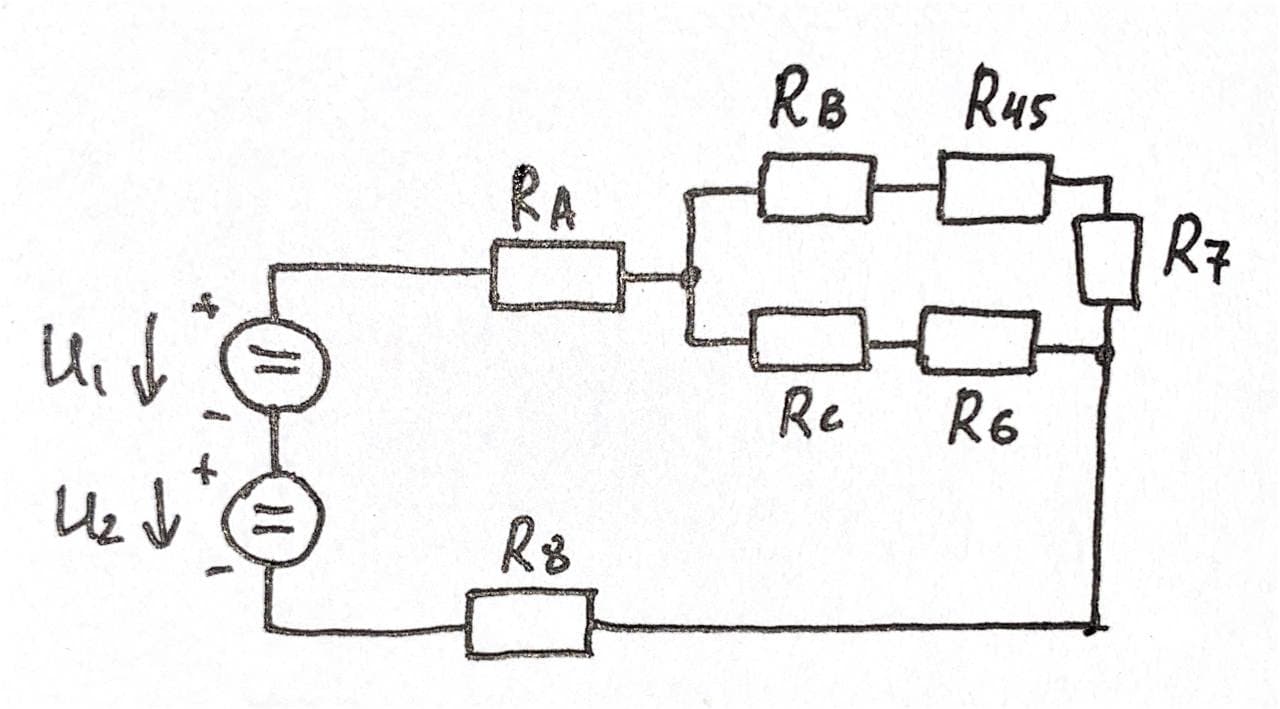 RB R45
RA
R7
+
U1 ↓ =
-
RC R6
+
U2 ↓ =
-
R8